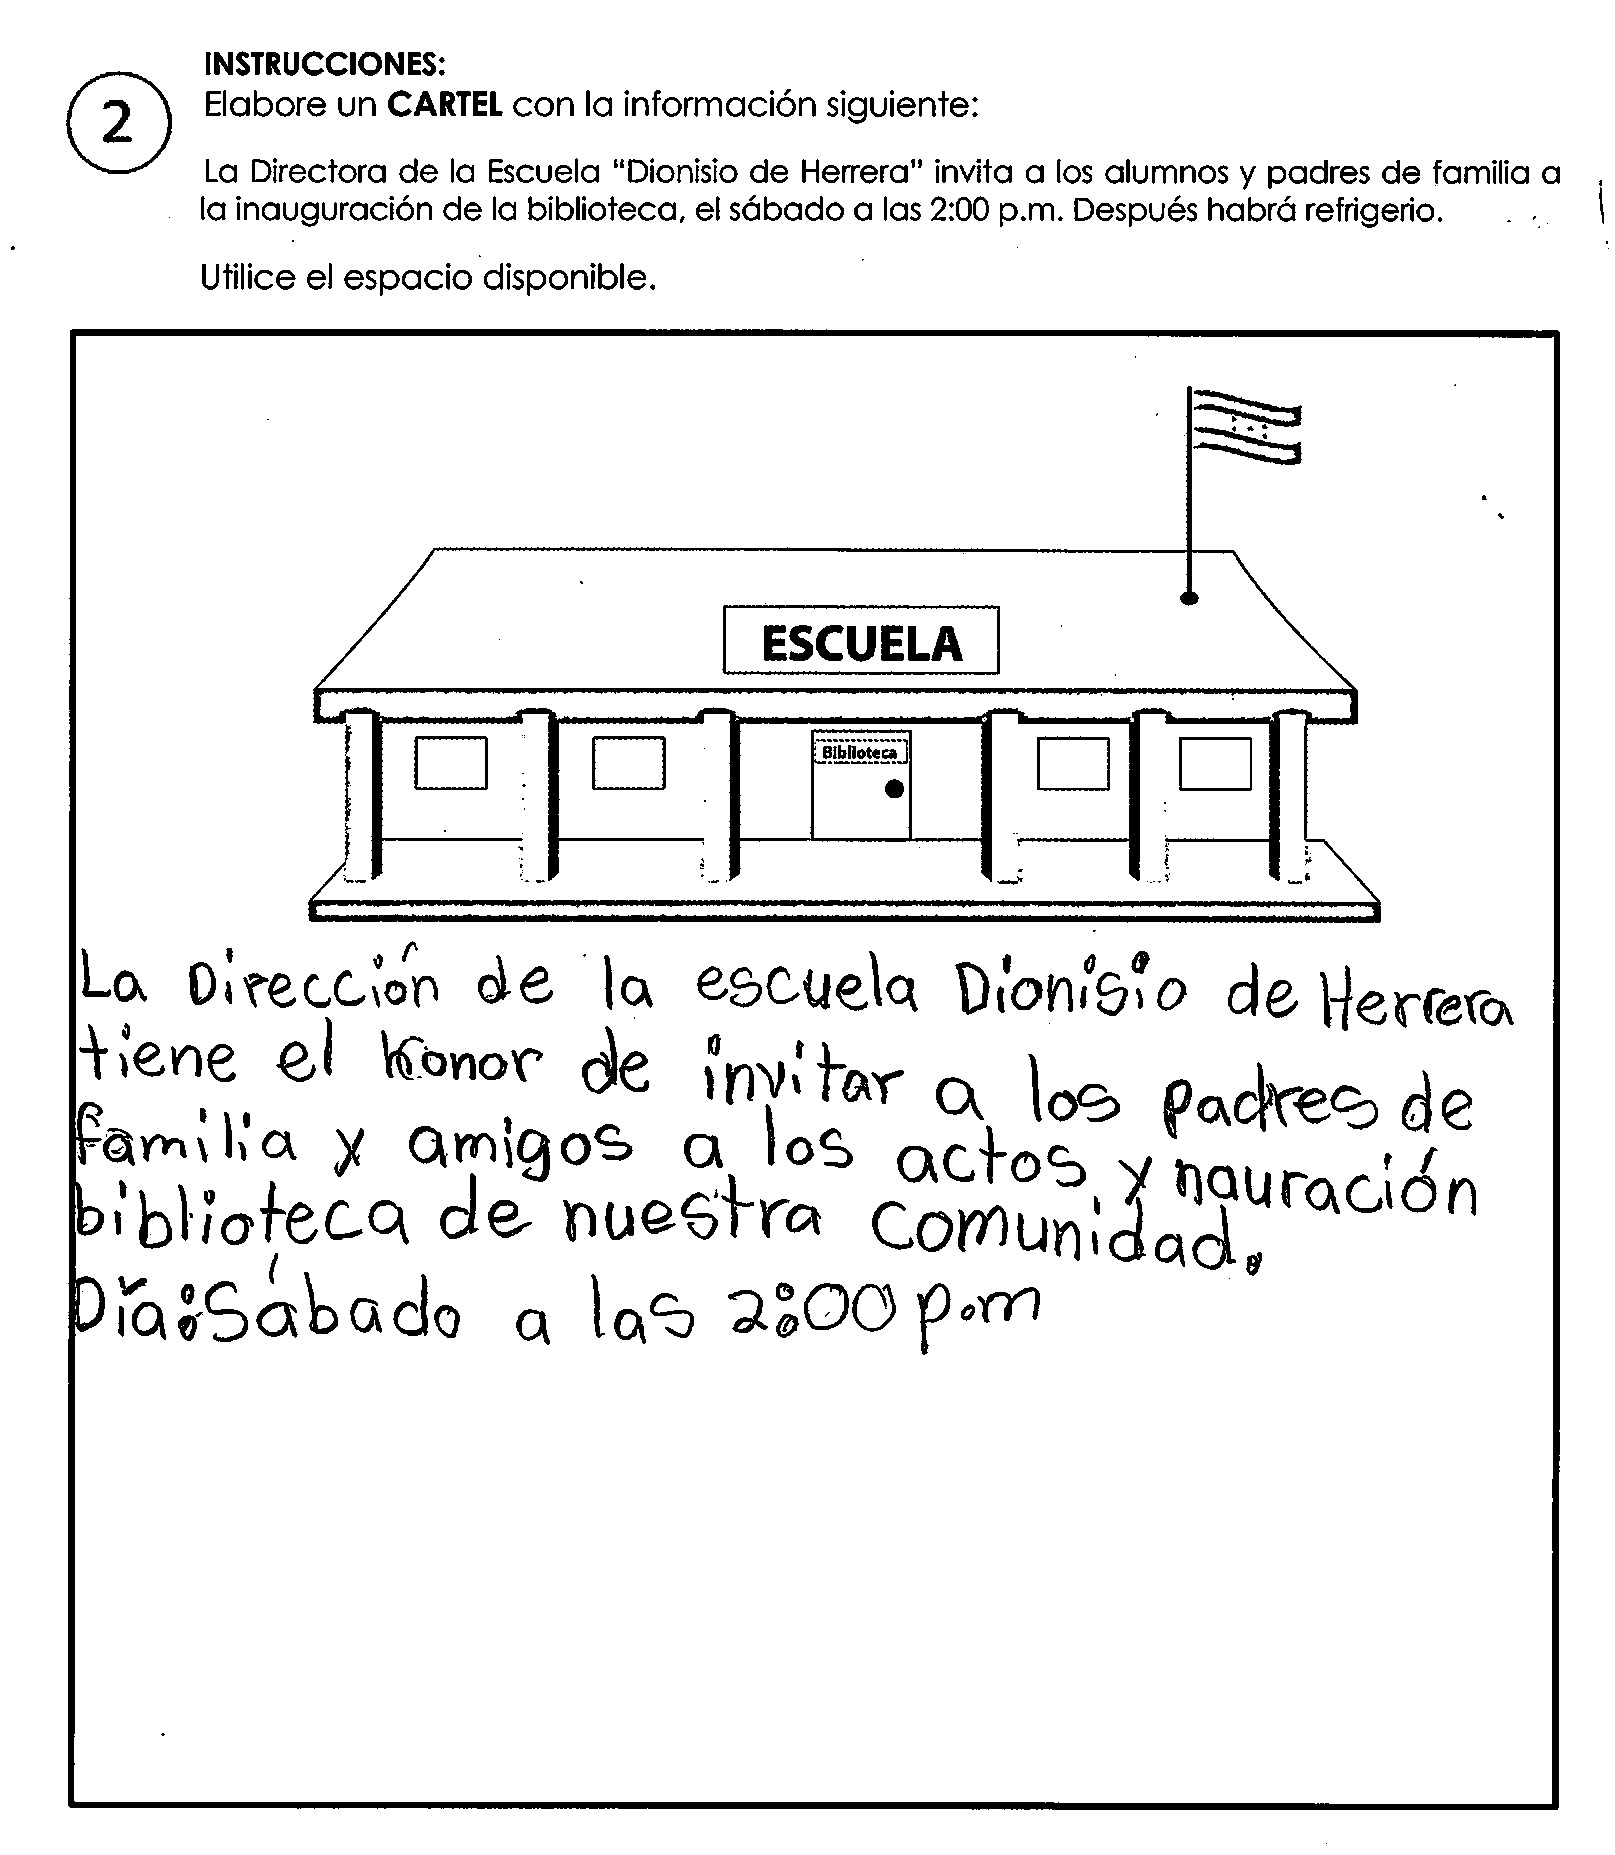 INSTRUCCIONES:
2
Elabore un CARTEL con la información siguiente:
La Directora de la Escuela "Dionisio de Herrera" invita a los alumnos y padres de familia a
la inauguración de la biblioteca, el sábado a las 2:00 p.m. Después habrá refrigerio.
Utilice el espacio disponible.
ESCUELA
Biblioteca
La Dirección de la escuela Dionisio de Herrera
tiene el honor de invitar a los padres de
familia y amigos a los actos y nauración
biblioteca de nuestra comunidad.
Día:Sábado a las 2:00 p.m